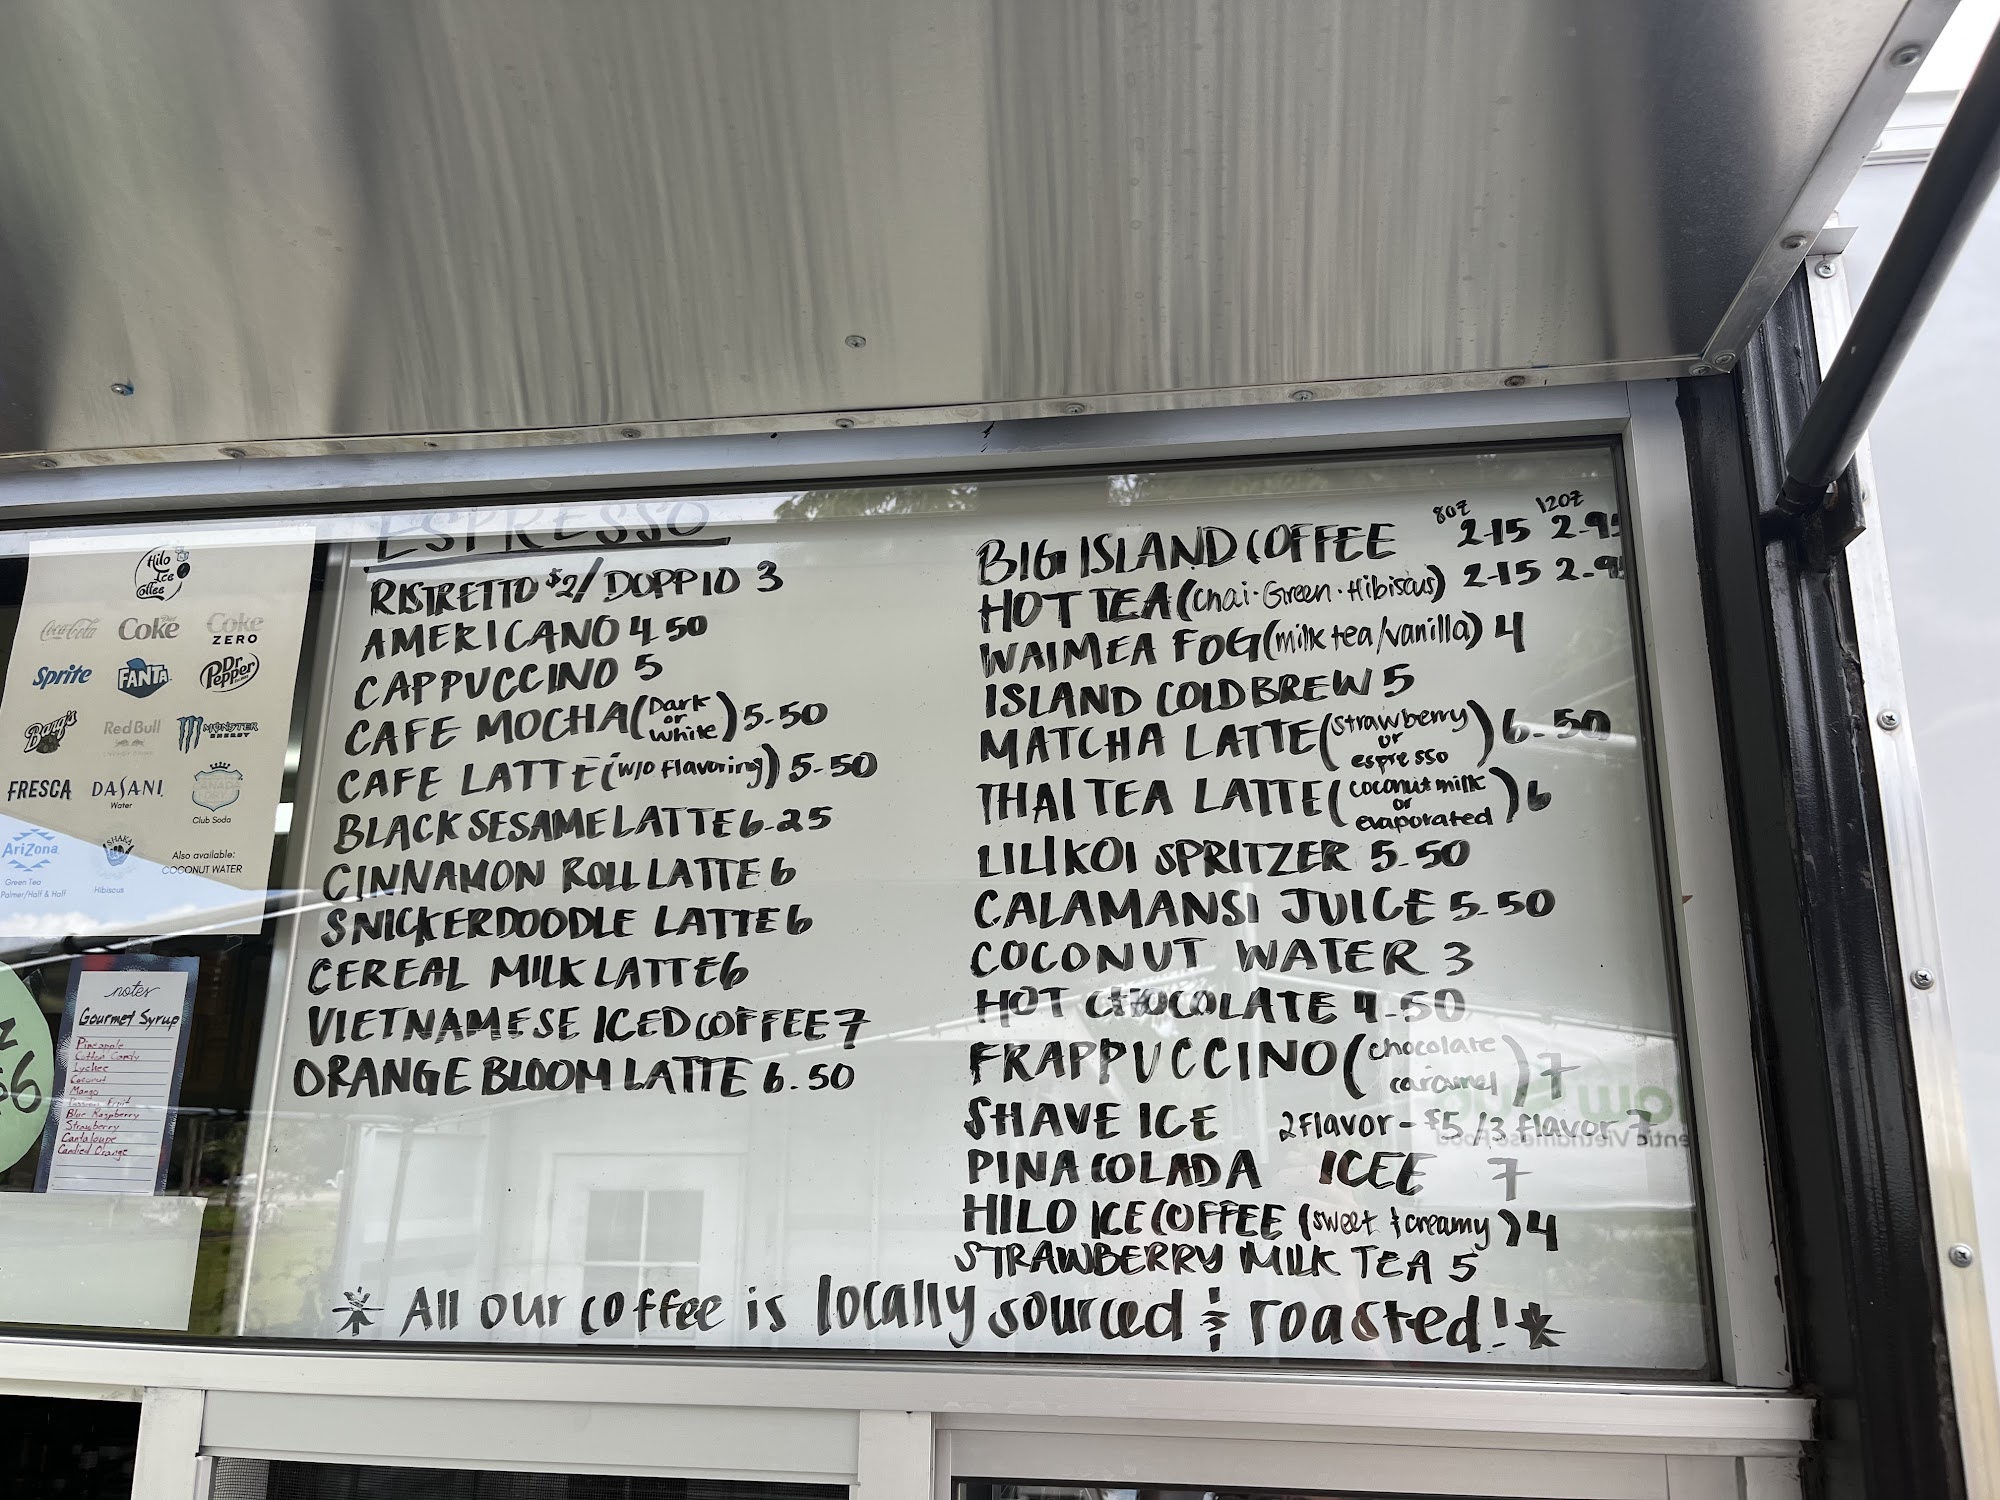 Hilo
Ice
Coffee
Coca-Cola
Diet
Coke
Coke
ZERO
Sprite
FANTA
Dr Pepper
Barq's
Red Bull
MONSTER
ENERGY
FRESCA
DASANI
Water
CANADA
DRY
Club Soda
AriZona
Green Tea
Palmer/Half & Half
SHAKA
Hibiscus
Also available:
COCONUT WATER
notes
Gourmet Syrup
Pineapple
Cotton Candy
Lychee
Coconut
Mango
Passion Fruit
Blue Raspberry
Strawberry
Cantaloupe
Candied Orange
ESPRESSO
RISTRETTO $2/ DOPPIO 3
AMERICANO 4.50
CAPPUCCINO 5
CAFE MOCHA (Dark or white) 5-50
CAFE LATTE (w/o flavoring) 5-50
BLACK SESAME LATTE 6-25
CINNAMON ROLL LATTE 6
SNICKERDOODLE LATTE 6
CEREAL MILK LATTE 6
VIETNAMESE ICED COFFEE 7
ORANGE BLOOM LATTE 6.50
8oz 12oz
BIG ISLAND COFFEE 2-15 2-95
HOT TEA (Chai·Green·Hibiscus) 2-15 2-95
WAIMEA FOG (milk tea/vanilla) 4
ISLAND COLD BREW 5
MATCHA LATTE (strawberry or espresso) 6-50
THAI TEA LATTE (coconut milk or evaporated) 6
LILIKOI SPRITZER 5-50
CALAMANSI JUICE 5-50
COCONUT WATER 3
HOT CHOCOLATE 4-50
FRAPPUCCINO (chocolate caramel) 7
SHAVE ICE 2 flavor - $5 /3 flavor 7
PINA COLADA ICEE 7
HILO ICE COFFEE (sweet & creamy) 4
STRAWBERRY MILK TEA 5
* All our coffee is locally sourced & roasted! *